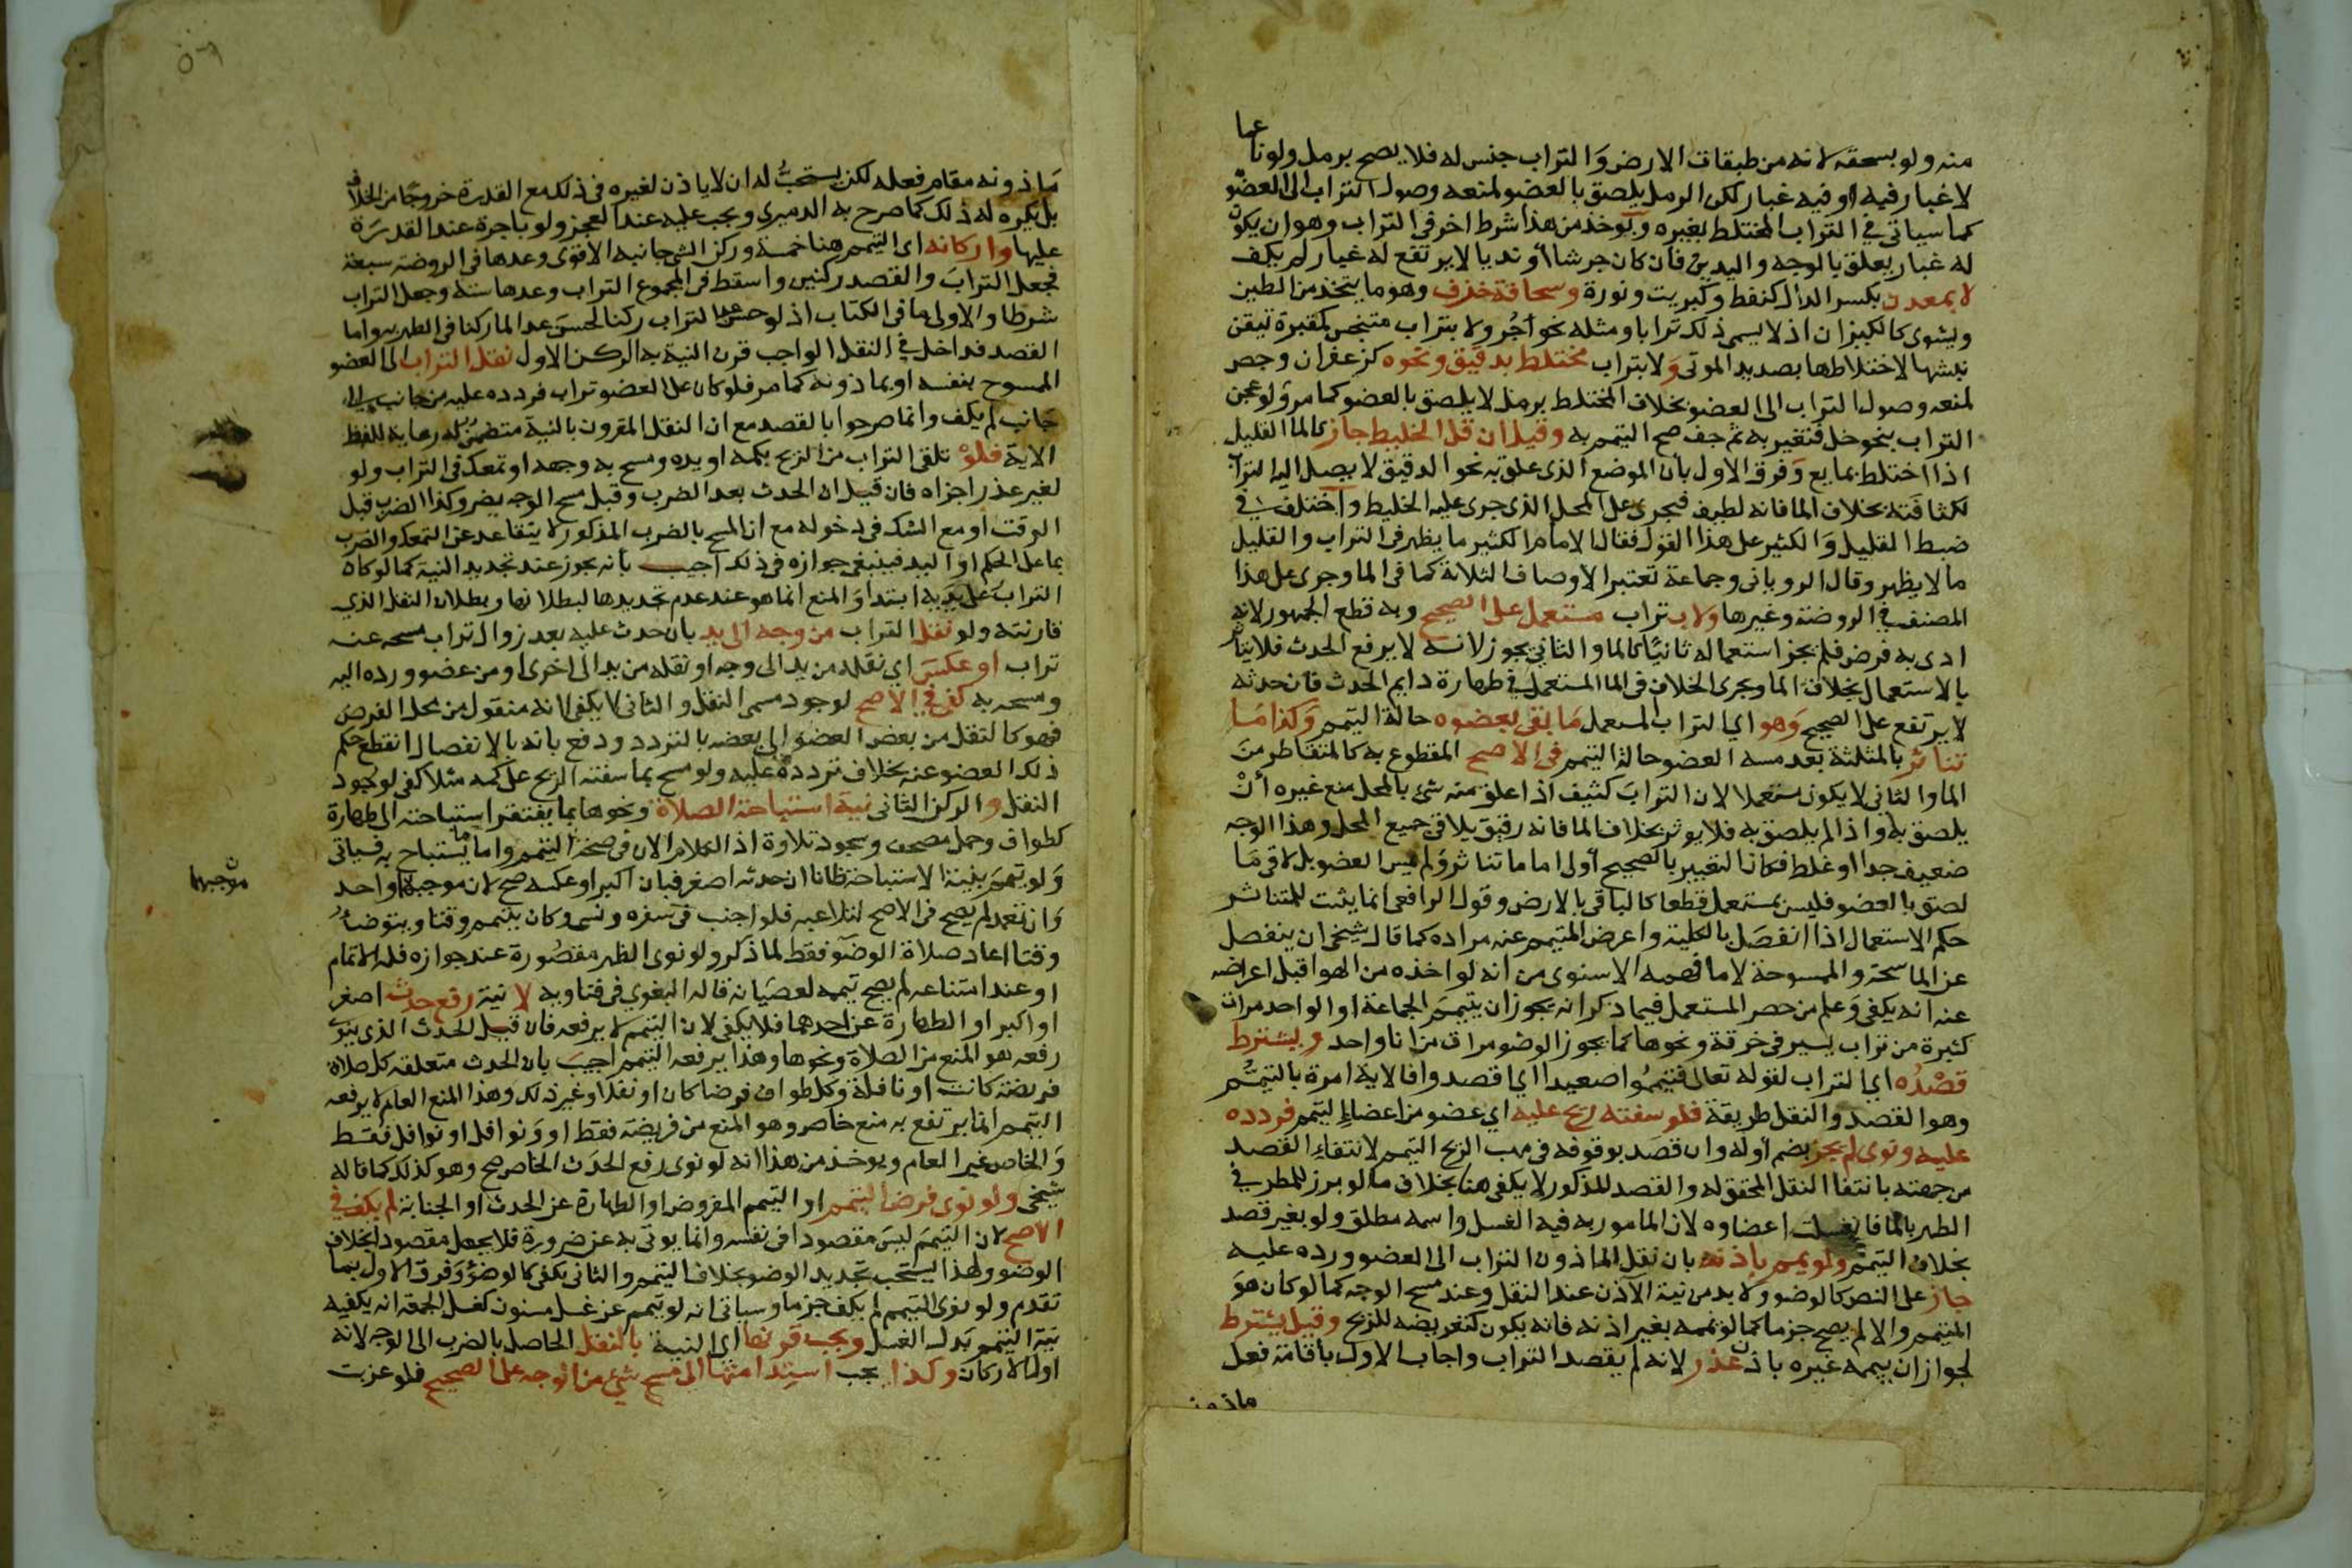 منه ولو بسحقه لانه من طبقات الارض والتراب جنس له فلا يصح برمل ولو ناعما
لا غبار فيه او فيه غبار لكن الرمل يلصق بالعضو لمنعه وصول التراب الى العضو
كما سياتي في التراب المختلط بغيره ويوخذ من هذا شرط اخر في التراب وهو ان يكون
له غبار يعلق بالوجه واليدين فان كان جرشا او نديا لا يرتفع له غبار لم يكف
لا بمعدن بكسر الدال كنفط وكبريت ونورة وسحاقة خزف وهو ما يتخذ من الطين
ويشوى كالكيزان اذ لا يسمى ذلك ترابا ومثله نحو آجر ولا بتراب متنجس كمقبرة تيقن
نبشها لاختلاطها بصديد الموتى ولا بتراب مختلط بدقيق ونحوه كزعفران وجص
لمنعه وصول التراب الى العضو بخلاف المختلط برمل لا يلصق بالعضو كما مر ولو عجن
التراب بنحو خل فتغير به ثم جف صح التيمم به وقيل ان قل الخليط جاز كالما القليل
اذا اختلط بمايع وفرق الاول بان الموضع الذي علق به نحو الدقيق لا يصل اليه التراب
لكثافته بخلاف الما فانه لطيف فيجري على المحل الذي جرى عليه الخليط واختلف في
ضبط القليل والكثير على هذا القول فقال الامام الكثير ما يظهر في التراب والقليل
ما لا يظهر وقال الروياني وجماعة تعتبر الاوصاف الثلاثة كما في الما وجرى على هذا
المصنف في الروضة وغيرها ولا بتراب مستعمل على الصحيح وبه قطع الجمهور لانه
ادى به فرض فلم يجز استعماله ثانيا كالما والثاني يجوز لانه لا يرفع الحدث فلا يتاثر
بالاستعمال بخلاف الما ويجرى الخلاف في الما المستعمل في طهارة دايم الحدث فان حدثه
لا يرتفع على الصحيح وهو اي التراب المستعمل ما بقى بعضوه حالة التيمم وكذا ما
تناثر بالمثلثة بعد مسه العضو حالة التيمم في الاصح المقطوع به كالمتقاطر من
الما والثاني لا يكون مستعملا لان التراب كثيف اذا علق منه شي بالمحل منع غيره ان
يلصق به واذا لم يلصق به فلا يوثر بخلاف الما فانه رقيق يلاقي جميع المحل وهذا الوجه
ضعيف جدا او غلط فكان التعبير بالصحيح اولى اما ما تناثر ولم يمس العضو بل لاقى ما
لصق بالعضو فليس بمستعمل قطعا كالباقي بالارض وقول الرافعي انما يثبت للمتناثر
حكم الاستعمال اذا انفصل بالكلية واعرض المتيمم عنه مراده كما قال شيخي ان ينفصل
عن الماسحة والممسوحة لا ما فهمه الاسنوي من انه لو اخذه من الهوا قبل اعراضه
عنه انه يكفي وعلم من حصر المستعمل فيما ذكر انه يجوز ان يتيمم الجماعة او الواحد مرات
كثيرة من تراب يسير في خرقة ونحوها كما يجوز الوضو مرات من انا واحد ويشترط
قصده اي التراب لقوله تعالى فتيمموا صعيدا اي اقصدوا فالاية امرة بالتيمم
وهو القصد والنقل طريقة فلو سفته ريح عليه اي عضو من اعضاء التيمم فردده
عليه ونوى لم يجز بضم اوله وان قصد بوقوفه في مهب الريح التيمم لانتفاء القصد
من جهته بانتفا النقل المحقق له والقصد المذكور لا يكفي هنا بخلاف ما لو برز للمطر في
الطهر بالما فانغسلت اعضاوه لان المامور به فيه الغسل واسمه مطلق ولو بغير قصد
بخلاف التيمم ولو يمم باذنه بان نقل الماذون التراب الى العضو ورده عليه
جاز على النص كالوضو ولا بد من نية الآذن عند النقل وعند مسح الوجه كما لو كان هو
المتيمم والا لم يصح جزما كما لو يممه بغير اذنه فانه يكون كتعرضه للريح وقيل يشترط
لجواز ان ييممه غيره باذن عذر لانه لم يقصد التراب واجاب الاول باقامة فعل
ماذونه
ماذونه مقام فعله لكن يستحب له ان لا ياذن لغيره في ذلك مع القدرة خروجا من الخلاف
بل يكره له ذلك كما صرح به الدميري ويجب عليه عند العجز ولو باجرة عند القدرة
عليها واركانه اي التيمم هنا خمسة وركن الشي جانبه الاقوى وعدها في الروضة سبعة
فجعل التراب والقصد ركنين واسقط في المجموع التراب وعدها ستة وجعل التراب
شرطا والاولى ما في الكتاب اذ لو حسن عد التراب ركنا لحسن عد الما ركنا في الطهر به واما
القصد فداخل في النقل الواجب قرن النية به الركن الاول نقل التراب الى العضو
الممسوح بنفسه او بماذونه كما مر فلو كان على العضو تراب فردده عليه من جانب الى
جانب لم يكف وانما صرحوا بالقصد مع ان النقل المقرون بالنية متضمن له رعاية للفظ
الاية فلو تلقى التراب من الريح بكمه او يده ومسح به وجهه او تمعك في التراب ولو
لغير عذر اجزاه فان قيل ان الحدث بعد الضرب وقبل مسح الوجه يضر وكذا الضرب قبل
الوقت او مع الشك في دخوله مع ان المسح بالضرب المذكور لا يتقاعد عن التمعك والضرب
بما على الكم او اليد فينبغي جوازه في ذلك اجيب بانه يجوز عند تجديد النية كما لو كان
التراب على يديه ابتدا والمنع انما هو عند عدم تجديدها لبطلانها وبطلان النقل الذي
قارنته ولو نقل التراب من وجه الى يد بان حدث عليه بعد زوال تراب مسحه عنه
تراب او عكس اي نقله من يد الى وجه او نقله من يد الى اخرى او من عضو ورده اليه
ومسحه به كفى في الاصح لوجود مسمى النقل والثاني لا يكفي لانه منقول من محل الفرض
فهو كالنقل من بعض العضو الى بعضه بالتردد ودفع بانه بالانفصال انقطع حكم
ذلك العضو عنه بخلاف تردده عليه ولو مسح بما سفته الريح على كمه مثلا كفى لوجود
النقل والركن الثاني نية استباحة الصلاة ونحوها مما يفتقر استباحته الى طهارة
كطواف وحمل مصحف وسجود تلاوة اذ الكلام الان في صحة التيمم واما ما يستباح به فسياتي
ولو تيمم بنية الاستباحة ظانا ان حدثه اصغر فبان اكبر او عكسه صح لان موجبهما واحد
موجبهما
وان تعمد لم يصح في الاصح لتلاعبه فلو اجنب في سفره ونسي وكان يتيمم وقتا ويتوضا
وقتا اعاد صلاة الوضو فقط لما ذكر ولو نوى الظهر مقصورة عند جوازه فله الاتمام
او عند امتناعه لم يصح تيممه لعصيانه قاله البغوي في فتاويه لا نية رفع حدث اصغر
او اكبر او الطهارة عن احدهما فلا يكفي لان التيمم لا يرفعه فان قيل الحدث الذي ينوى
رفعه هو المنع من الصلاة ونحوها وهذا يرفعه التيمم اجيب بان الحدث متعلقه كل صلاة
فريضة كانت او نافلة وكل طواف فرضا كان او نفلا وغير ذلك وهذا المنع العام لا يرفعه
التيمم انما يرتفع به منع خاص وهو المنع من فريضة فقط او ونوافل او نوافل فقط
والخاص غير العام ويوخذ من هذا انه لو نوى رفع الحدث الخاص صح وهو كذلك كما قاله
شيخي ولو نوى فرض التيمم او التيمم المفروض او الطهارة عن الحدث او الجنابة لم يكف في
الاصح لان التيمم ليس مقصودا في نفسه وانما يوتى به عن ضرورة فلا يجعل مقصودا بخلاف
الوضو ولهذا يستحب تجديد الوضو بخلاف التيمم والثاني يكفي كالوضو وفرق الاول بما
تقدم ولو نوى التيمم لم يكف جزما وسياتي انه لو تيمم عن غسل مسنون كغسل الجمعة انه يكفيه
نية التيمم بدل الغسل ويجب قرنها اي النية بالنقل الحاصل بالضرب الى الوجه لانه
اول الاركان وكذا يجب استدامتها الى مسح شي من الوجه على الصحيح فلو عزبت